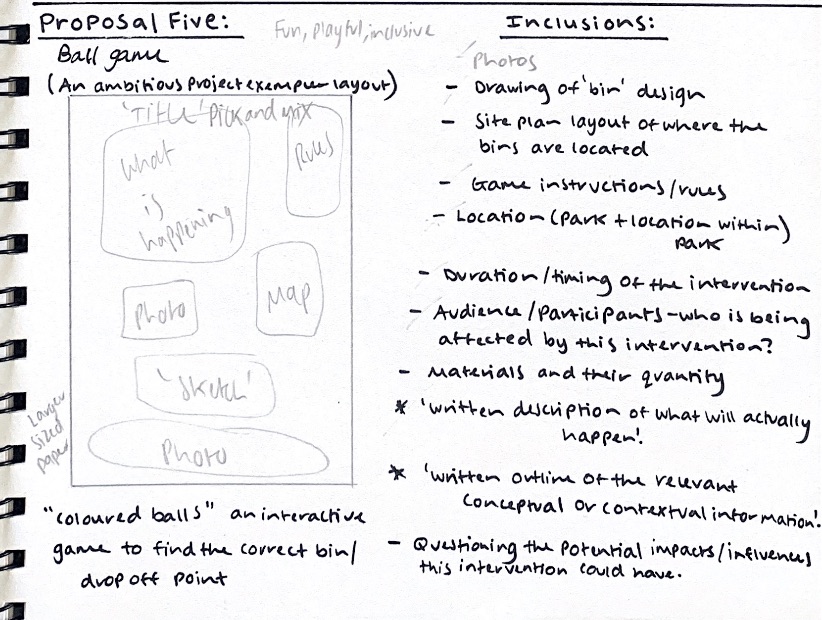 Proposal Five:
Fun, playful, inclusive
Ball game
(An ambitious project exemplar layout)
'Title' Pick and mix
What
is
happening
Rules
Photo
Map
'Sketch'
Photo
Larger
sized
paper
"coloured balls" an interactive
game to find the correct bin/
drop off point
Inclusions:
- Photos
- Drawing of 'bin' design
- Site plan layout of where the
bins are located
- Game instructions/rules
- Location (Park + location within)
park
- Duration/timing of the intervention
- Audience/Participants - who is being
affected by this intervention?
- Materials and their quantity
* 'written description of what will actually
happen'.
* 'written outline of the relevant
conceptual or contextual information'.
- Questioning the potential impacts/influences
this intervention could have.